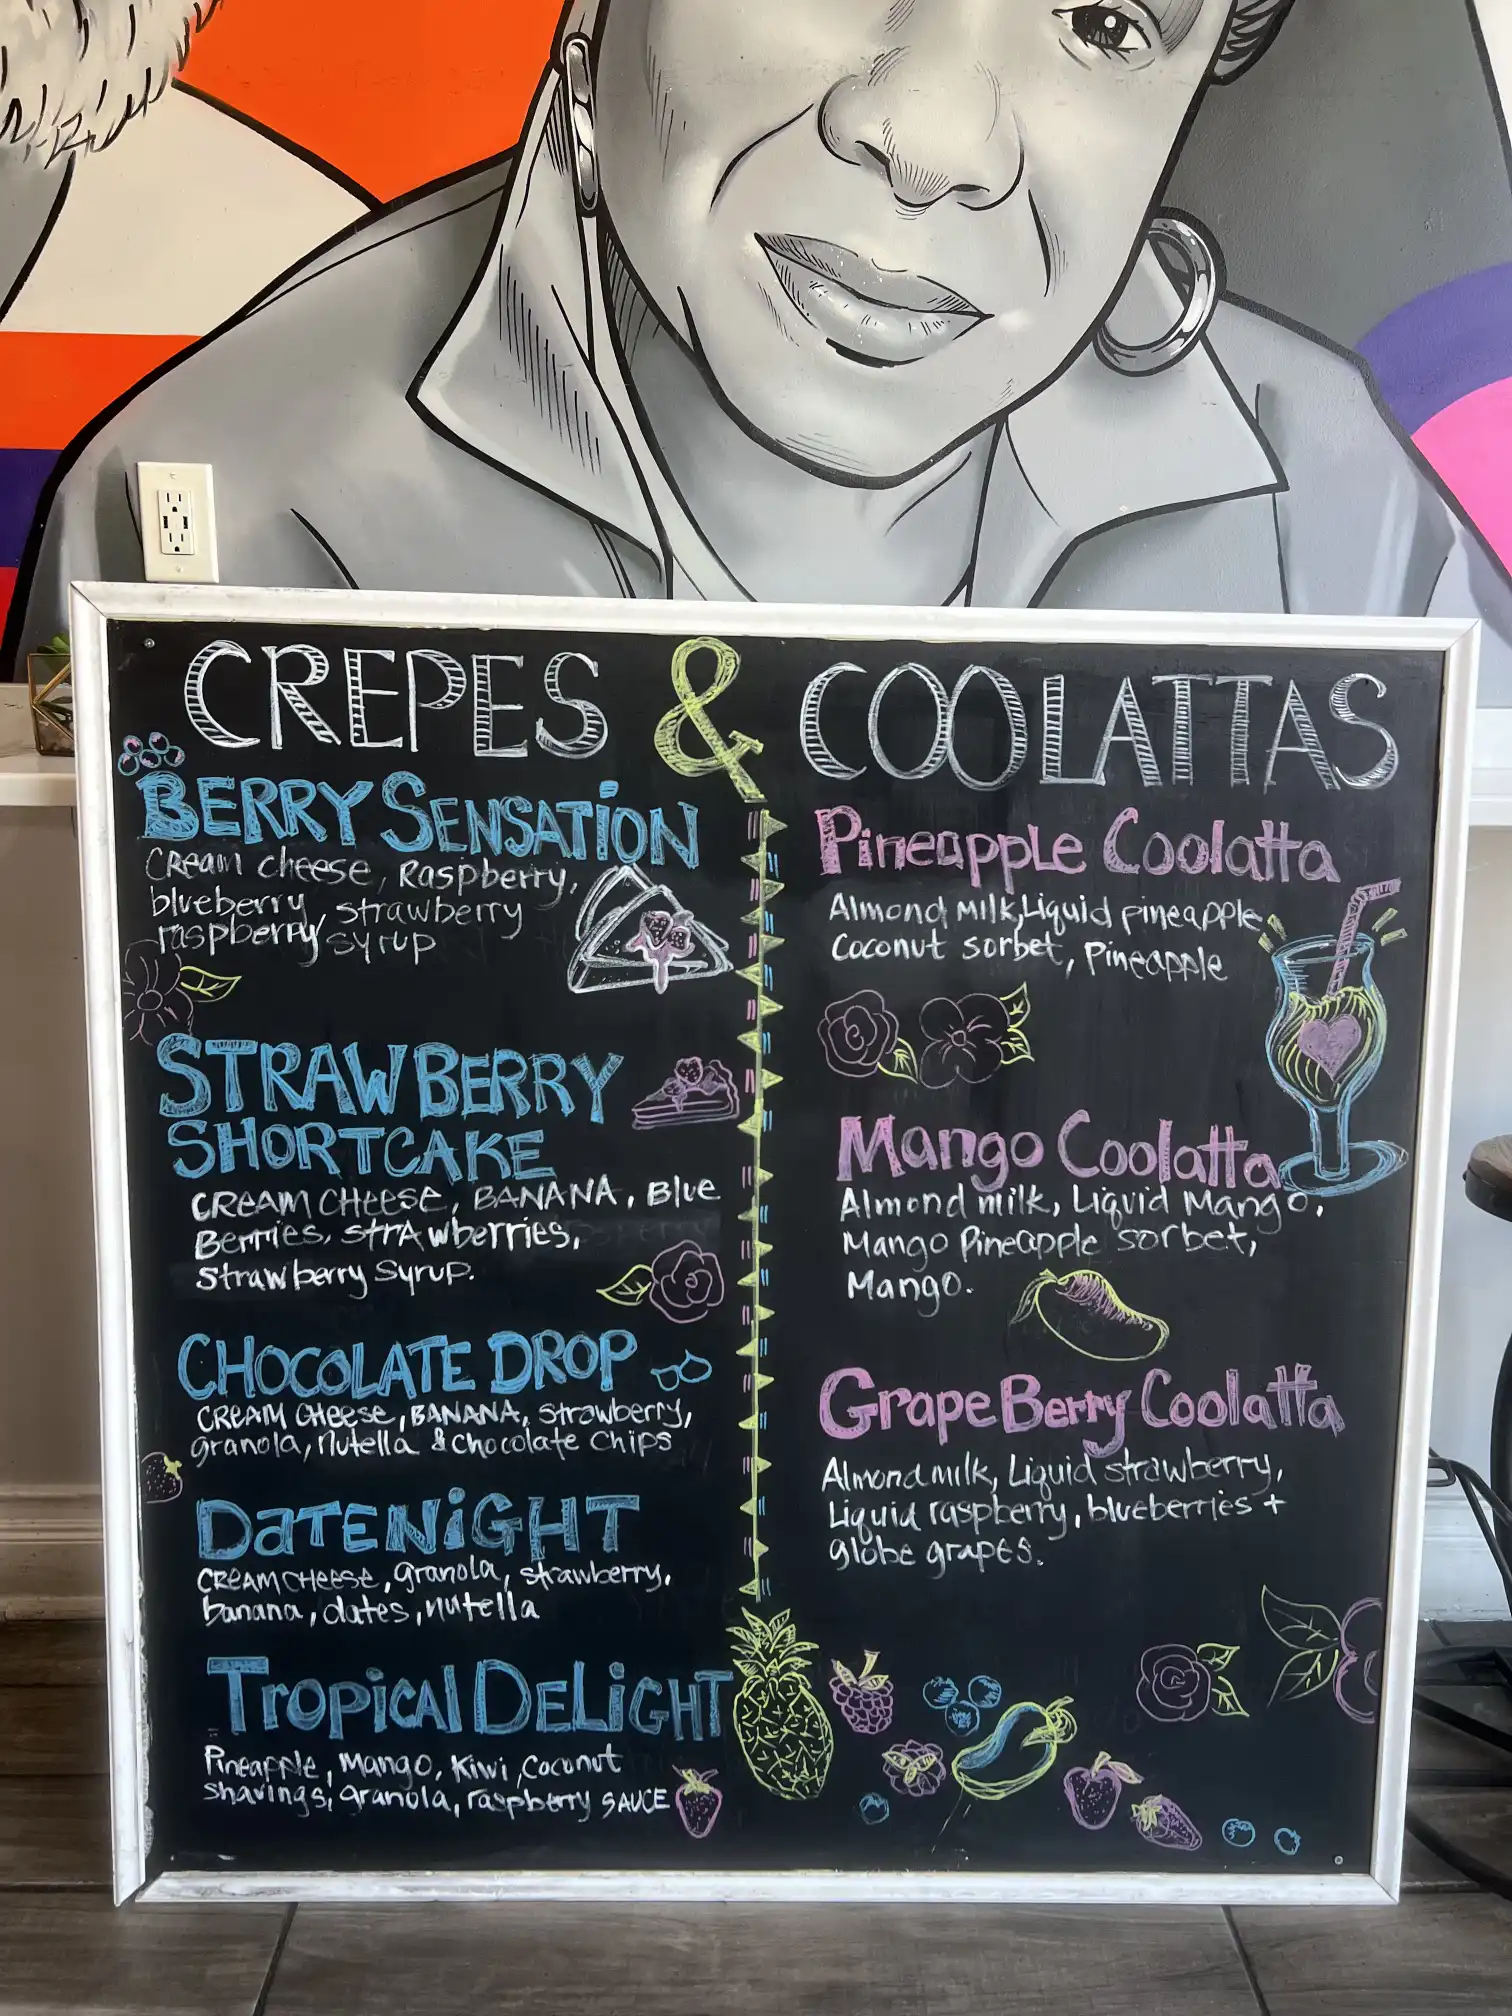 CREPES & COOLATTAS
BERRY SENSATION
Cream cheese, Raspberry,
blueberry, strawberry
raspberry syrup
STRAWBERRY
SHORTCAKE
CREAM CHEESE, BANANA, Blue
Berries, strAwberries,
Strawberry Syrup.
CHOCOLATE DROP
CREAM CHeese, BANANA, strawberry,
granola, Nutella & chocolate chips
DaTENiGHT
CREAM CHEESE, granola, strawberry,
banana, dates, nutella
TropicAl DELiGHT
Pineapple, Mango, Kiwi, Coconut
shavings, granola, raspberry SAUCE
Pineapple Coolatta
Almond Milk, Liquid pineapple
Coconut sorbet, Pineapple
Mango Coolatta
Almond milk, Liquid Mango,
Mango Pineapple sorbet,
Mango.
Grape Berry Coolatta
Almond milk, Liquid strawberry,
Liquid raspberry, blueberries +
globe grapes.